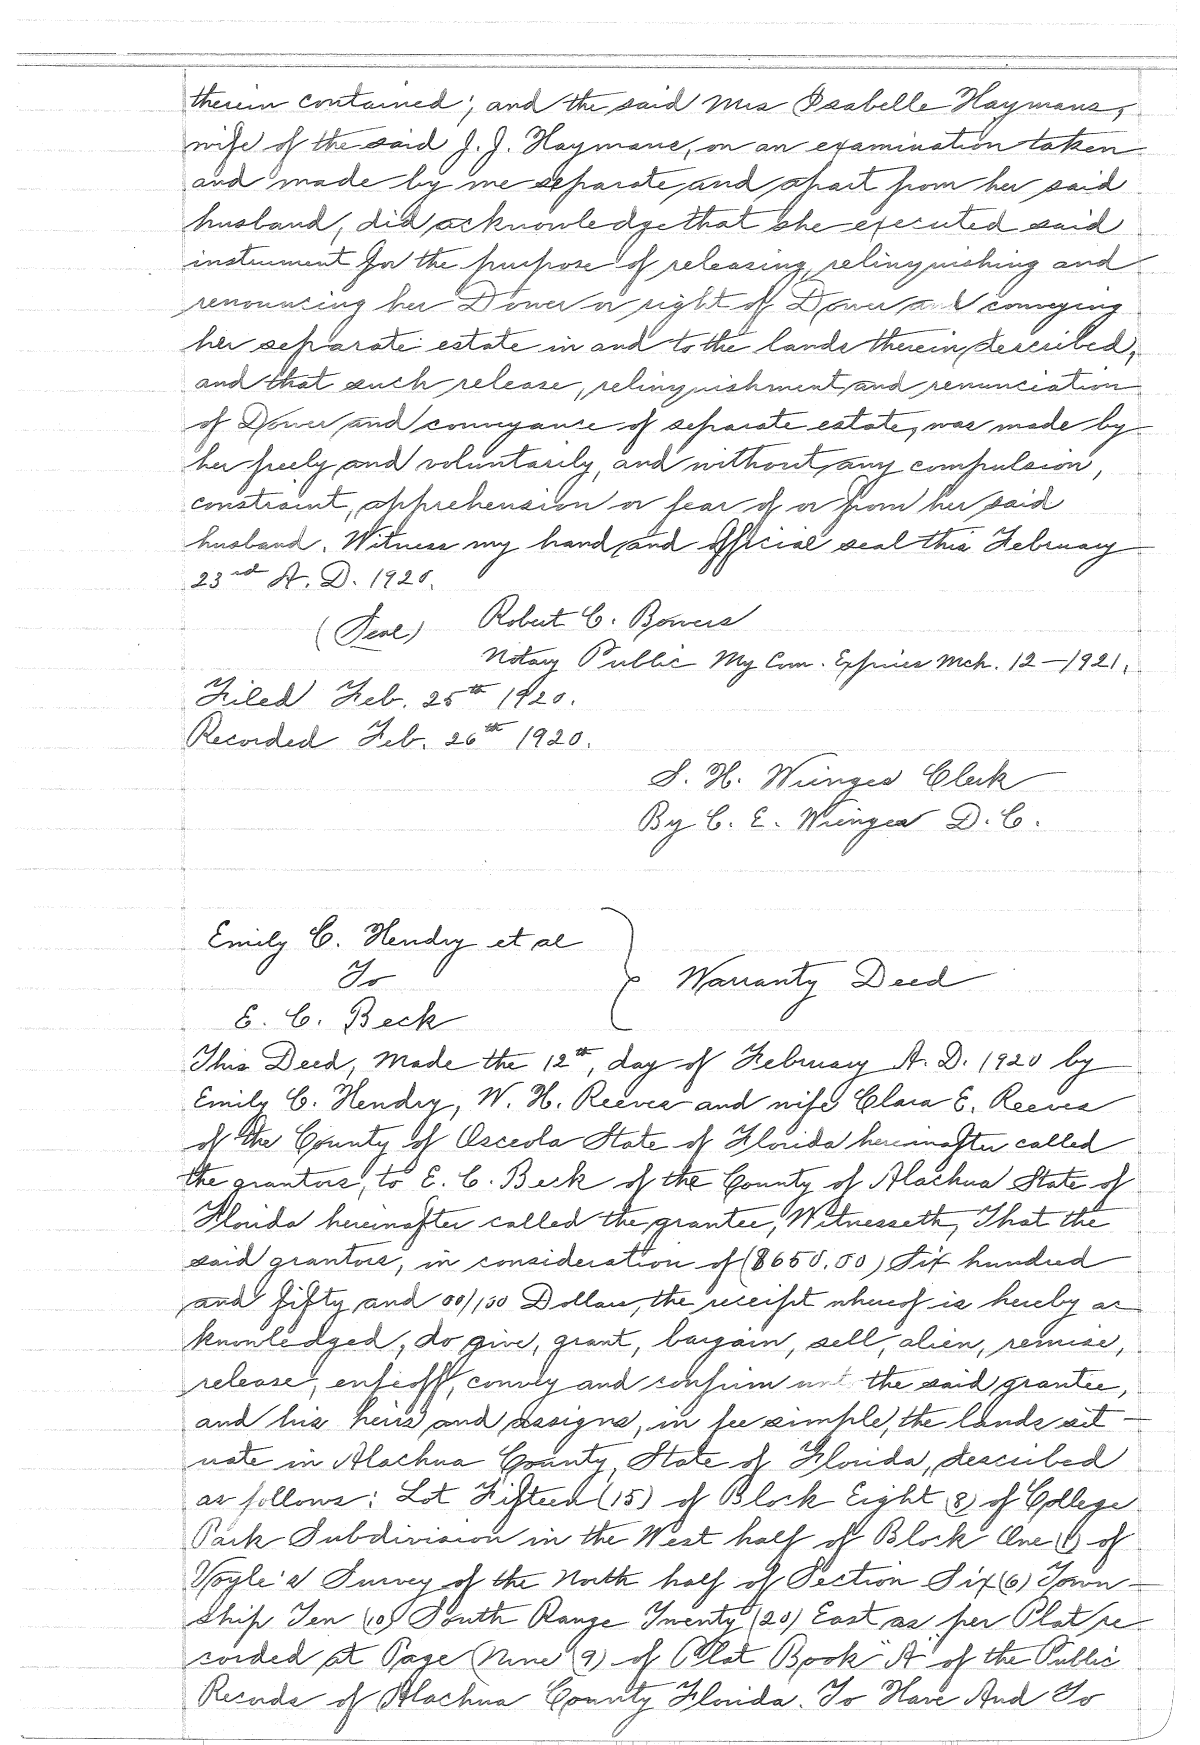 therein contained; and the said Mrs Isabelle Haymans,
wife of the said J. J. Haymans, on an examination taken
and made by me separate and apart from her said
husband, did acknowledge that she executed said
instrument for the purpose of releasing, relinquishing and
renouncing her Dower or right of Dower and conveying
her separate estate in and to the lands therein described,
and that such release, relinquishment and renunciation
of Dower and conveyance of separate estate, was made by
her freely and voluntarily, and without any compulsion,
constraint, apprehension or fear of or from her said
husband. Witness my hand and official seal this February
23rd A. D. 1920.
(Seal) Robert C. Bowers
Notary Public My Com. Expires Mch. 12-1921.
Filed Feb. 25th 1920.
Recorded Feb. 26th 1920.
S. H. Wienges Clerk
By C. E. Wienges D. C.
Emily C. Hendry et al
To } Warranty Deed
E. C. Beck
This Deed, Made the 12th, day of February A. D. 1920 by
Emily C. Hendry, W. H. Reeves and wife Clara E. Reeves
of the County of Osceola State of Florida hereinafter called
the grantors, to E. C. Beck of the County of Alachua State of
Florida hereinafter called the grantee, Witnesseth, That the
said grantors, in consideration of ($650.00) Six hundred
and fifty and 00/100 Dollars, the receipt whereof is hereby ac
knowledged, do give, grant, bargain, sell, alien, remise,
release, enfeoff, convey and confirm unt the said grantee,
and his heirs and assigns, in fee simple, the lands sit-
uate in Alachua County, State of Florida, described
as follows: Lot Fifteen (15) of Block Eight (8) of College
Park Subdivision in the West half of Block One (1) of
Voyle's Survey of the North half of Section Six (6) Town-
ship Ten (10) South Range Twenty (20) East as per Plat re
corded at Page (Nine (9) of Plat Book "A" of the Public
Records of Alachua County Florida. To Have And To